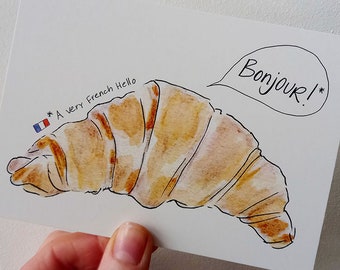 Bonjour!*
* A very French Hello